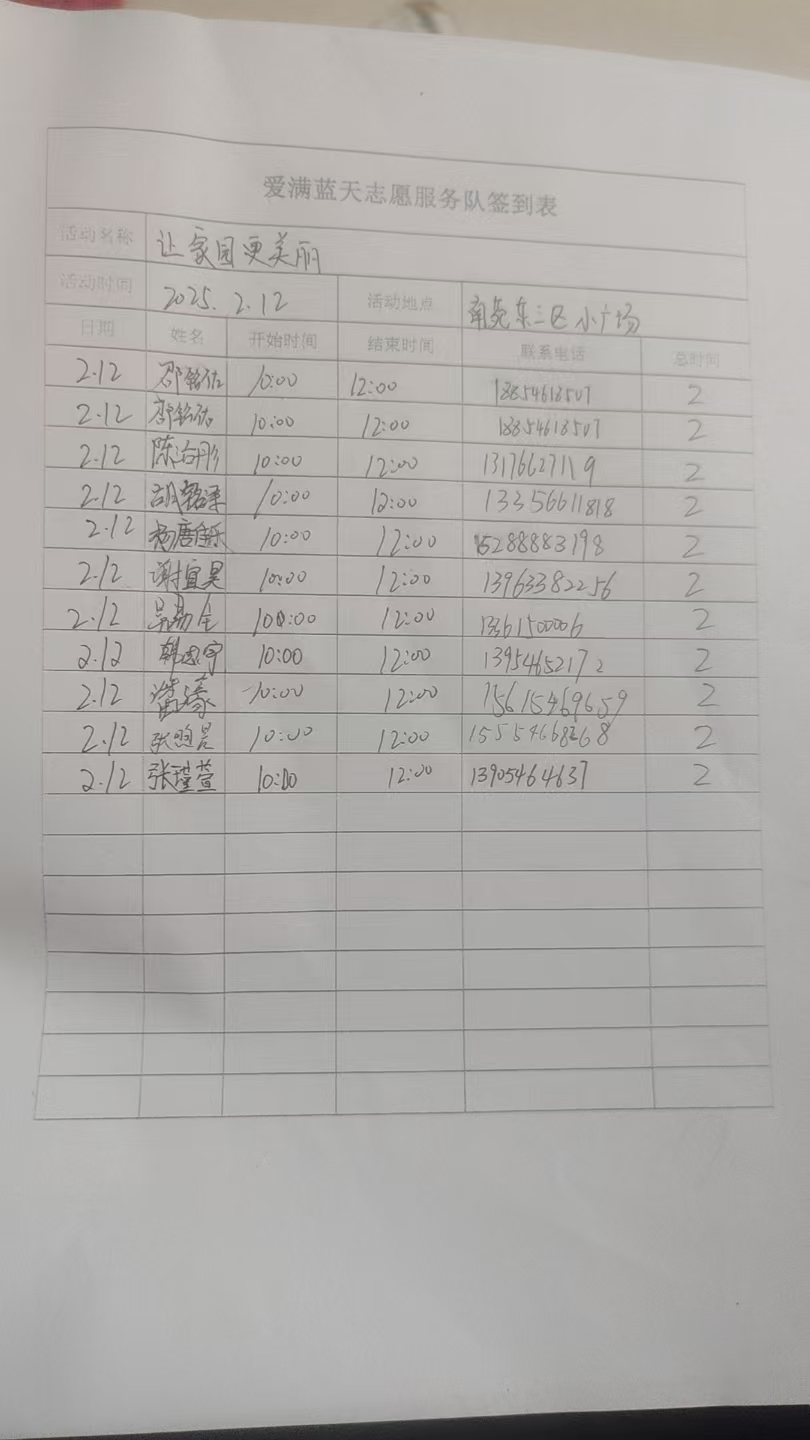 爱满蓝天志愿服务队签到表
活动名称 让家园更美丽
活动时间 2025.2.12 活动地点 东三区小广场
日期 姓名 开始时间 结束时间 联系电话 总时间
2.12 10:00 12:00 18854618507 2
2.12 10:00 12:00 18854618507 2
2.12 陈 10:00 12:00 13176627119 2
2.12 胡 10:00 12:00 13356611818 2
2.12 杨唐 10:00 12:00 15288883198 2
2.12 谢宜昊 10:00 12:00 13963382256 2
2.12 吴易 12:00 13361500006 2
2.12 韩 10:00 12:00 13954652172 2
2.12 10:00 12:00 15615469659 2
2.12 张煦 10:00 12:00 2
2.12 张瑾萱 10:00 12:00 13905464637 2